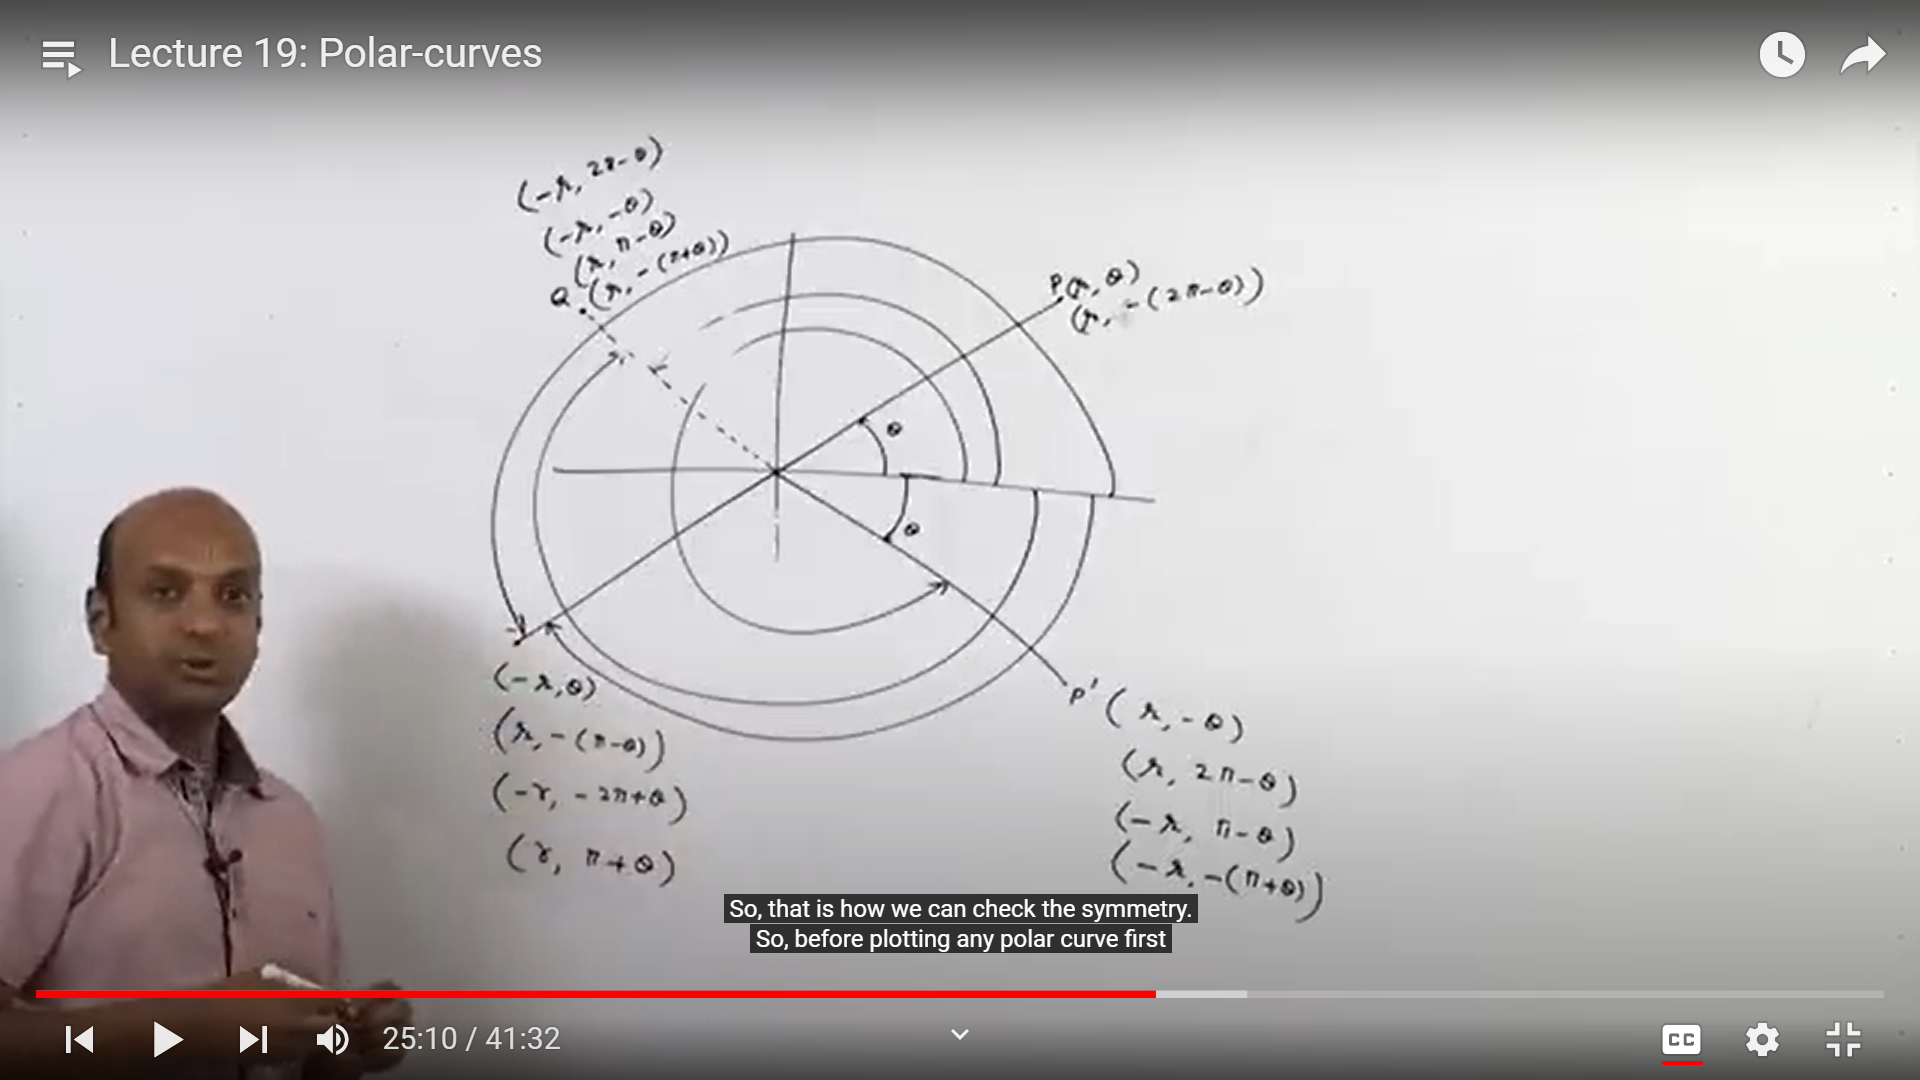 Lecture 19: Polar-curves
(-r, 2π-θ)
(-r, -θ)
(r, π-θ)
Q (r, -(π+θ))
P(r, θ)
(r, -(2π-θ))
θ
θ
(-r, θ)
(r, -(π-θ))
(-r, -2π+θ)
(r, π+θ)
P' (r, -θ)
(r, 2π-θ)
(-r, π-θ)
(-r, -(π+θ))
So, that is how we can check the symmetry.
So, before plotting any polar curve first
25:10 / 41:32
CC